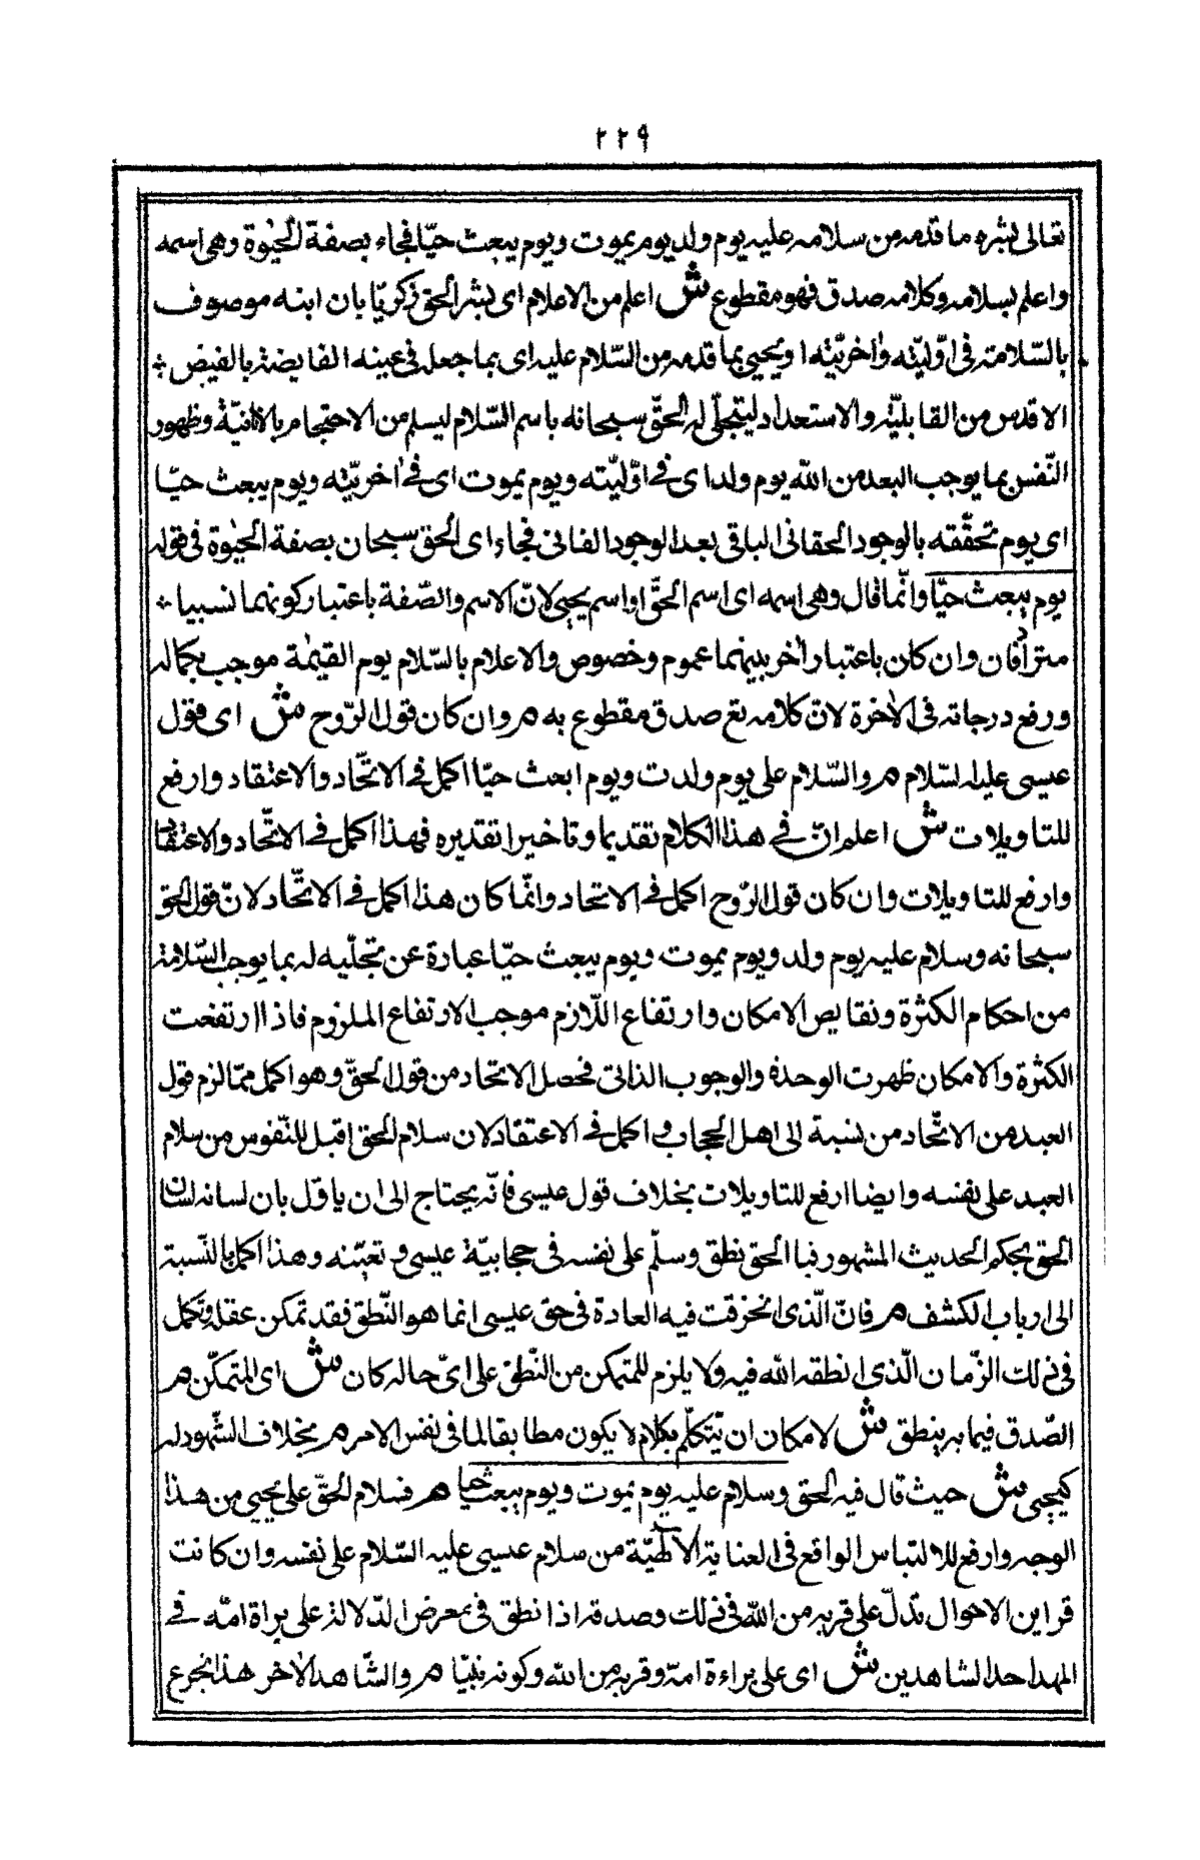 ٢٢٩
تعالى بشره بما قدمه من سلامه عليه يوم ولد يوم يموت ويوم يبعث حيّا فجاء بصفة الحيٰوة وهى اسمه
واعلم بسلامه وكلامه صدق فهو مقطوع ش اعلم من الاعلام اى بشر الحق زكريّا بان ابنه موصوف
بالسّلامة فى اوّليّته واٰخريّته او يحيى بما قدمه من السّلام عليه اى بما جعل فى عينه الفايضة بالفيض
الاقدس من القابليّة والاستعداد ليتجلّى له الحقّ سبحانه باسم السّلام ليسلم من الاحتجاب بالانانيّة وظهور
النّفس بما يوجب البعد من الله يوم ولد اى فى اوّليّته ويوم يموت اى فى اٰخريّته ويوم يبعث حيّا
اى يوم تحقّقه بالوجود الحقانى الباقى بعد الوجود الفانى فجاء اى الحق سبحان بصفة الحيٰوة فى قوله
يوم يبعث حيّا وانّما قال وهى اسمه اى اسم الحقّ او اسم يحيى لانّ الاسم والصّفة باعتبار كونهما نسبيا
مترادفان وان كان باعتبار اٰخر بينهما عموم وخصوص والاعلام بالسّلام يوم القيٰمة موجب بكماله
ورفع درجاته فى الاٰخرة لانّ كلامه تع صدق مقطوع به م وان كان قول الرّوح ش اى قول
عيسى عليه السّلام م والسّلام على يوم ولدت ويوم ابعث حيّا اكمل فى الاتّحاد والاعتقاد وارفع
للتاويلات ش اعلم انّ فى هذا الكلام تقديما وتاخيرا تقديره فهذا اكمل فى الاتّحاد والاعتقاد
وارفع للتاويلات وان كان قول الرّوح اكمل فى الاتحاد وانّما كان هذا اكمل فى الاتّحاد لانّ قول الحق
سبحانه وسلام عليه يوم ولد ويوم يموت ويوم يبعث حيّا عبارة عن تجلّيه له بما يوجب السّلامة
من احكام الكثرة ونقايص الامكان وارتفاع اللّازم موجب لارتفاع الملزوم فاذا ارتفعت
الكثرة والامكان ظهرت الوحدة والوجوب الذاتى فحصل الاتحاد من قول الحقّ وهو اكمل ممّا لزم قول
العبد من الاتّحاد من نسبة الى اهل الحجاب و اكمل فى الاعتقاد لان سلام الحق اقبل للنّفوس من سلام
العبد على نفسه وايضا ارفع للتاويلات بخلاف قول عيسى فانّه يحتاج الى ان ياوّل بان لسانه لسان
الحق بحكم الحديث المشهور فبا الحق نطق وسلّم على نفسه فى حجابيّة عيسى و تعيّنه وهذا اكمل بالنّسبة
الى ارباب الكشف م فانّ الّذى انخرقت فيه العادة فى حق عيسى انما هو النّطق فقد تمكن عقله وتكمل
فى ذلك الزّمان الّذى انطقه الله فيه ولا يلزم للمتمكن من النّطق على اىّ حاله كان ش اى المتمكّن م
الصّدق فيما به ينطق ش لامكان ان يتكلّم بكلام لا يكون مطابقا لما فى نفس الامر م بخلاف الشّهود له
كيحيى ش حيث قال فيه الحق وسلام عليه يوم يموت ويوم يبعث حيا م فسلام الحقّ على يحيى من هذا
الوجه وارفع للالتباس الواقع فى العناية الالٰهيّة من سلام عيسى عليه السّلام على نفسه وان كانت
قراين الاحوال تدلّ على قربه من الله فى ذلك وصدقه اذا نطق فى معرض الدّلالة على براة امّه فى
المهد احد الشاهدين ش اى على براءة امه وقربه من الله وكونه نبيّا م والشّاهد الاٰخر هذ الجرع